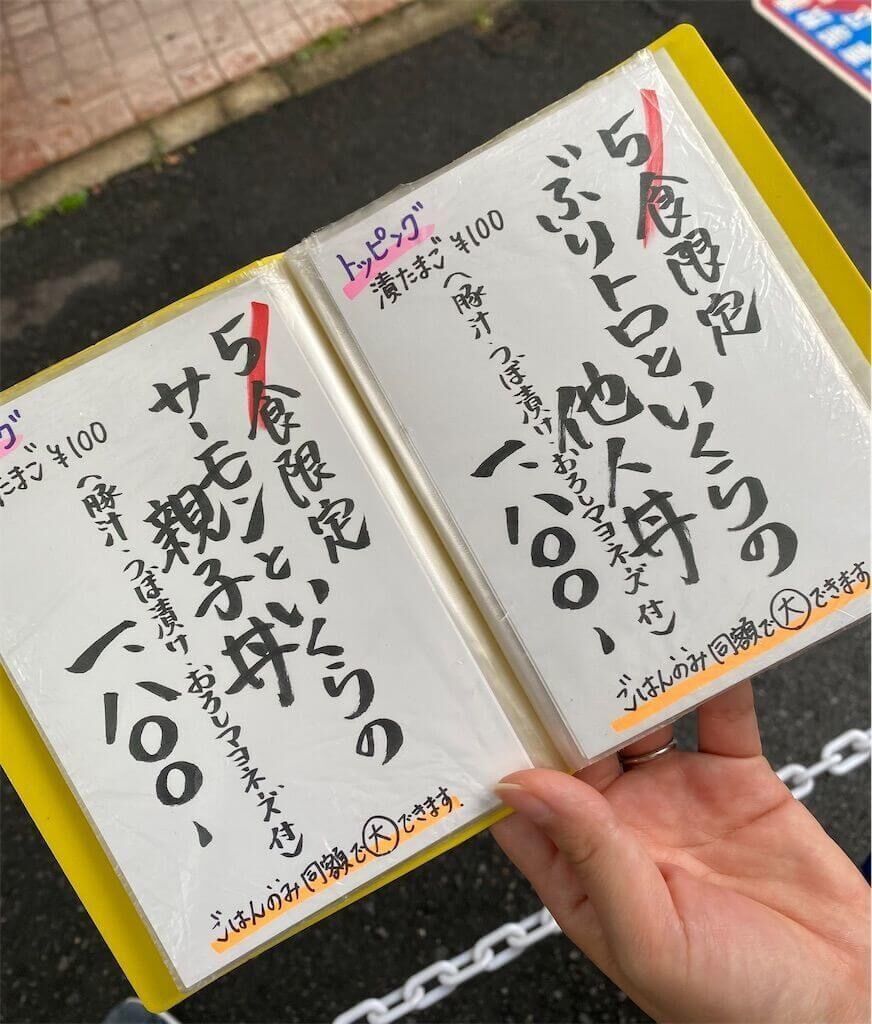 5食限定
ぶりトロといくらの
他人丼
一、八〇〇、
(豚汁・つぼ漬け・おろしマヨネーズ付)
トッピング
漬たまご ¥100
ごはんのみ同額で大できます
5食限定
サーモンといくらの
親子丼
一、八〇〇、
(豚汁・つぼ漬け・おろしマヨネーズ付)
グ
たまご ¥100
ごはんのみ同額で大できます.